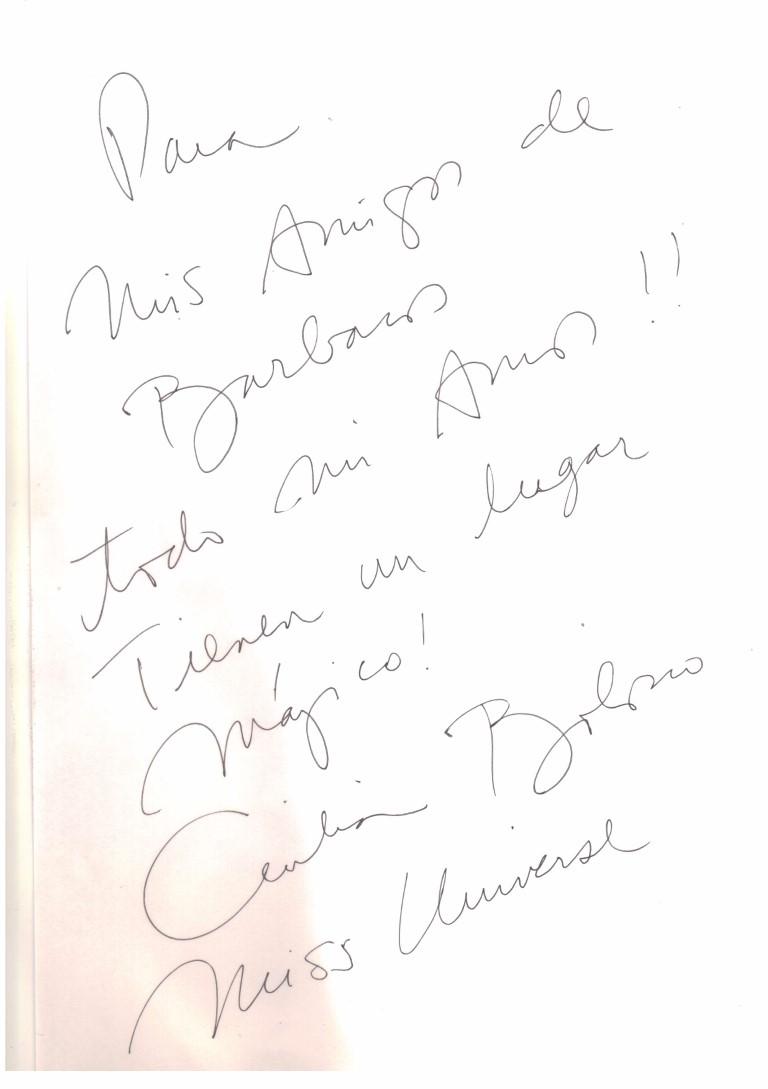 Para
Mis Amigos de
Barbaros
todo mi Amor !!
Tienen un lugar
Mágico!
Cecilia Bolocco
Miss Universe